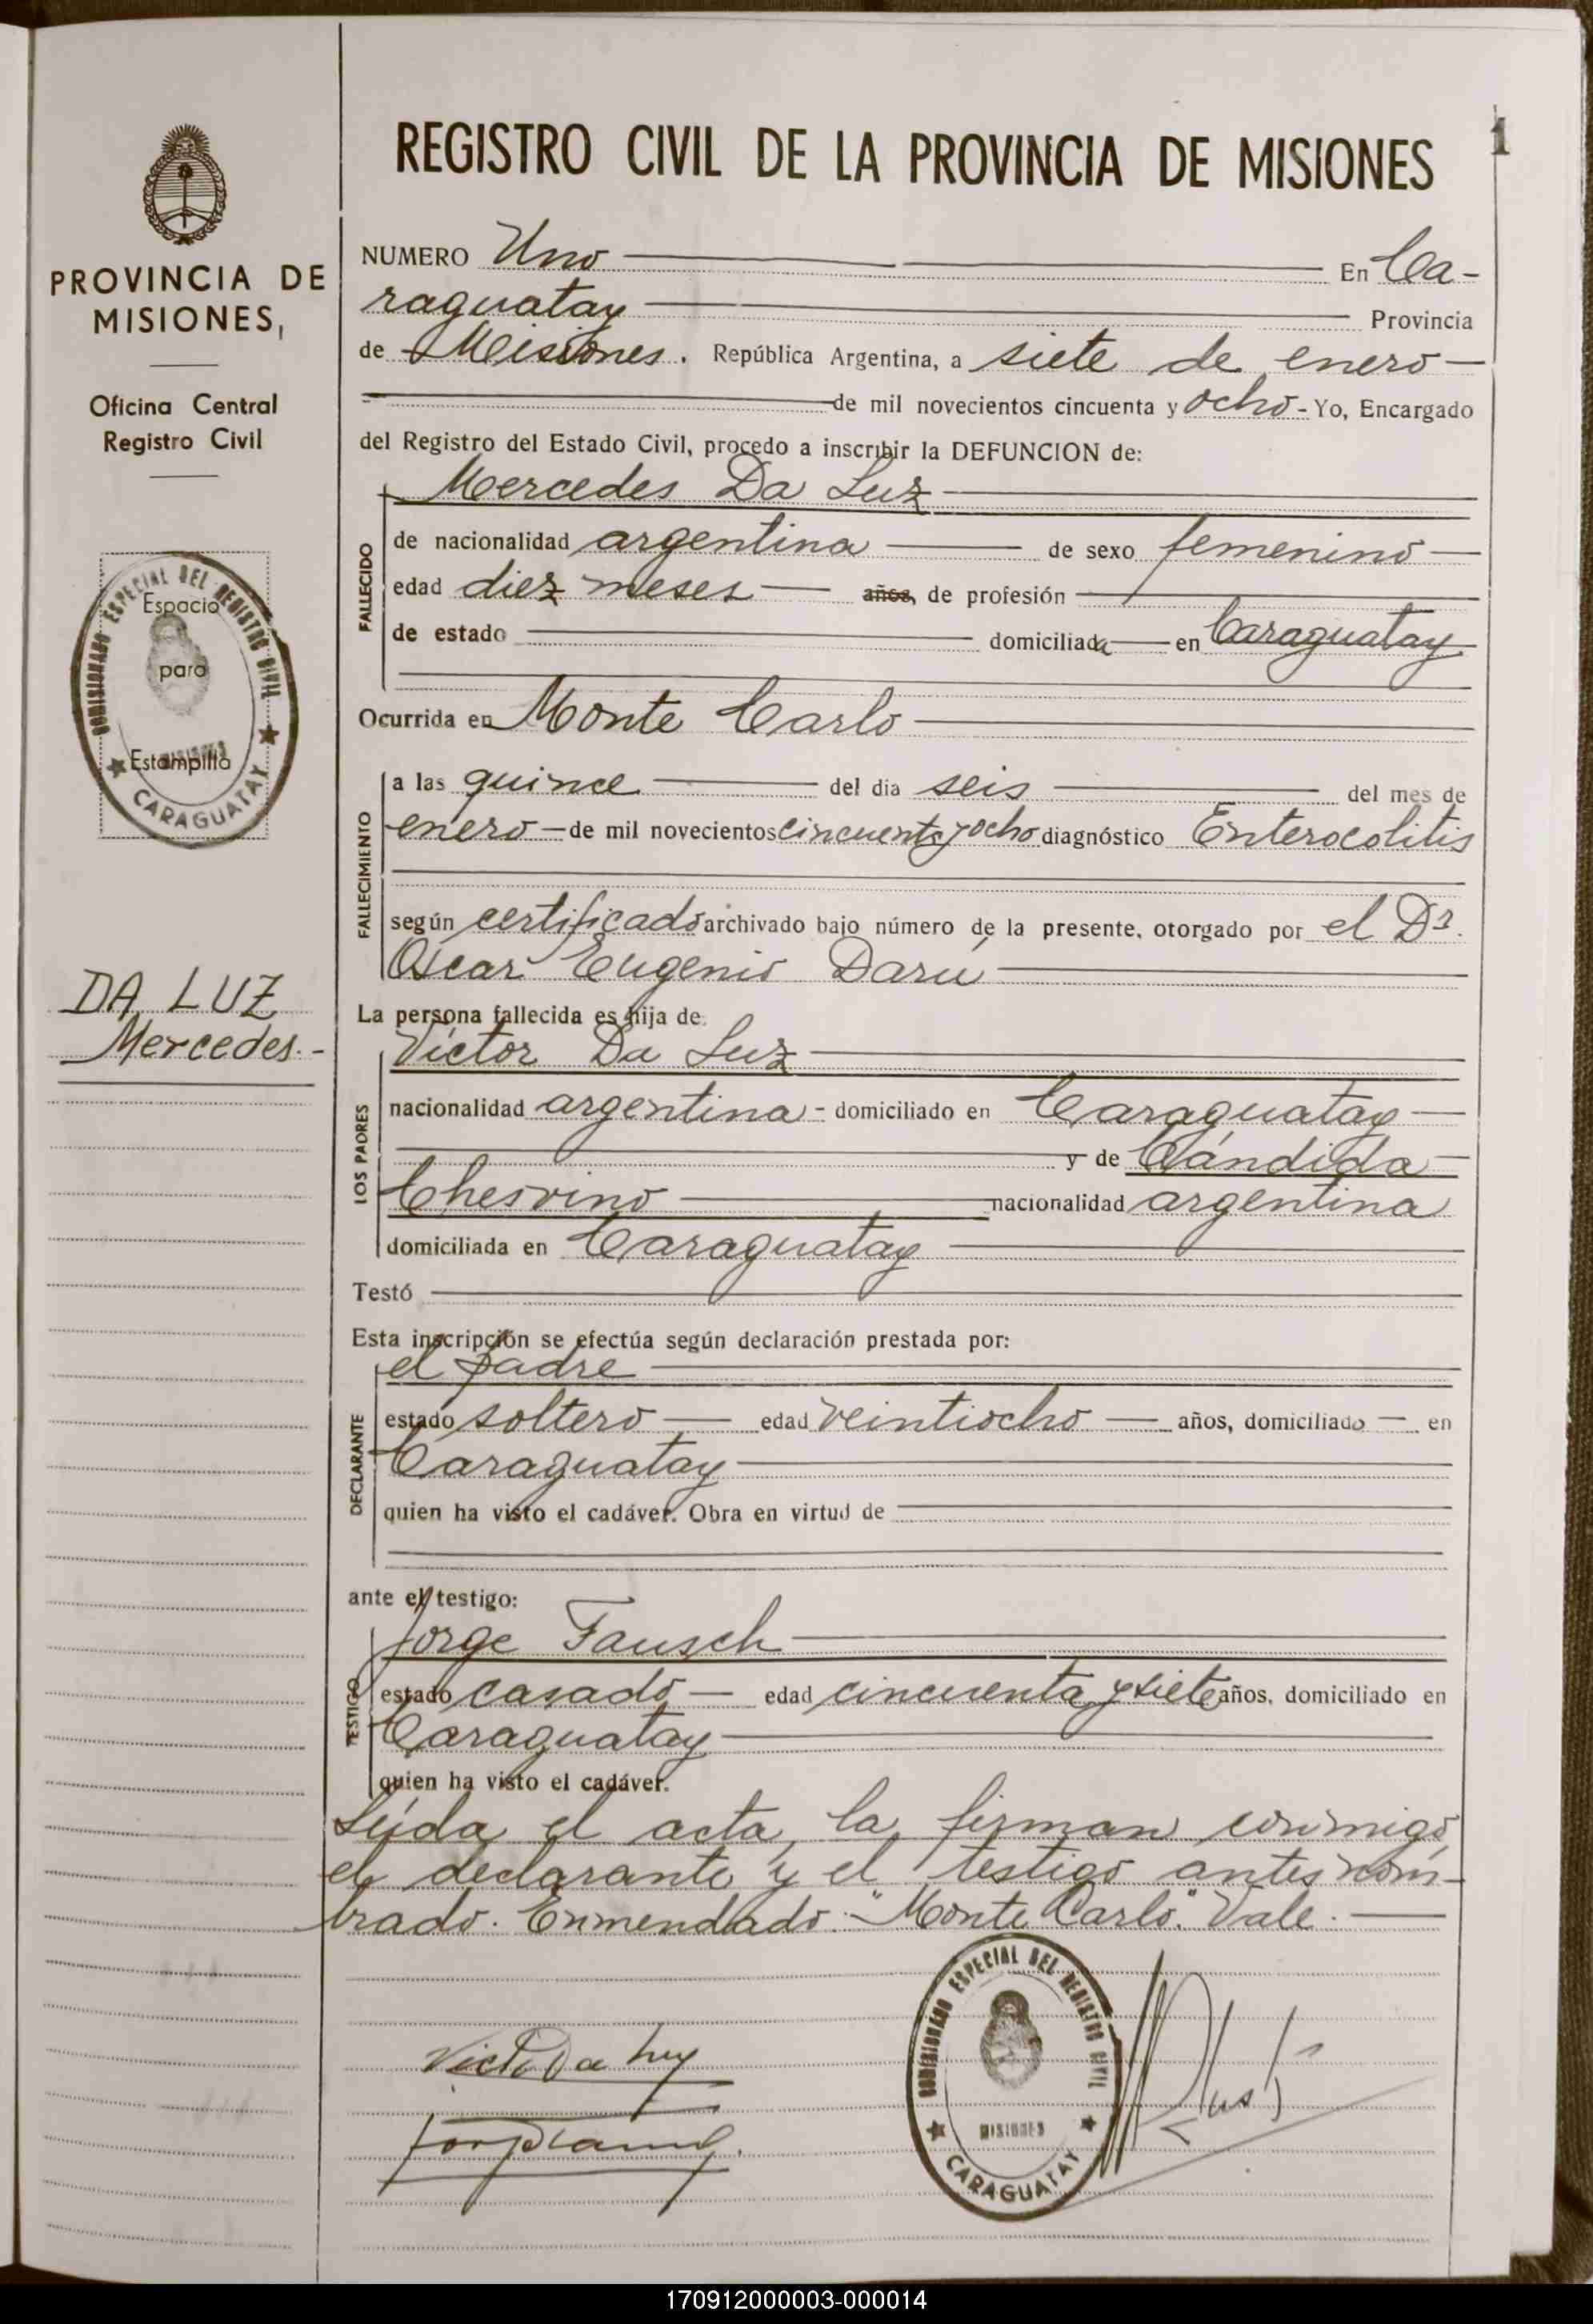 REGISTRO CIVIL DE LA PROVINCIA DE MISIONES
1
PROVINCIA DE
MISIONES,
Oficina Central
Registro Civil
COMISIONADO ESPECIAL DEL REGISTRO CIVIL
Espacio
para
Estampilla
MISIONES
CARAGUATAY
DA LUZ
Mercedes.-
NUMERO Uno En Ca-
raguatay Provincia
de Misiones. República Argentina, a siete de enero
de mil novecientos cincuenta y ocho - Yo, Encargado
del Registro del Estado Civil, procedo a inscribir la DEFUNCION de:
FALLECIDO
Mercedes Da Luz
de nacionalidad argentina de sexo femenino
edad diez meses años, de profesión
de estado domiciliada en Caraguatay
Ocurrida en Monte Carlo
FALLECIMIENTO
a las quince del dia seis del mes de
enero de mil novecientos cincuenta y ocho diagnóstico Enterocolitis
según certificado archivado bajo número de la presente, otorgado por el Dr.
Oscar Eugenio Darú
La persona fallecida es hija de
LOS PADRES
Víctor Da Luz
nacionalidad argentina - domiciliado en Caraguatay
y de Cándida
Chesvino nacionalidad argentina
domiciliada en Caraguatay
Testó
Esta inscripción se efectúa según declaración prestada por:
DECLARANTE
el padre
estado soltero edad veintiocho años, domiciliado en
Caraguatay
quien ha visto el cadáver. Obra en virtud de
ante el testigo:
TESTIGO
Jorge Fausch
estado casado edad cincuenta y siete años, domiciliado en
Caraguatay
quien ha visto el cadáver.
Leída el acta, la firman conmigo,
el declarante y el testigo antes nom-
brado. Enmendado: "Monte Carlo." Vale.
COMISIONADO ESPECIAL DEL REGISTRO CIVIL
MISIONES
CARAGUATAY
Victo Da luz
170912000003-000014